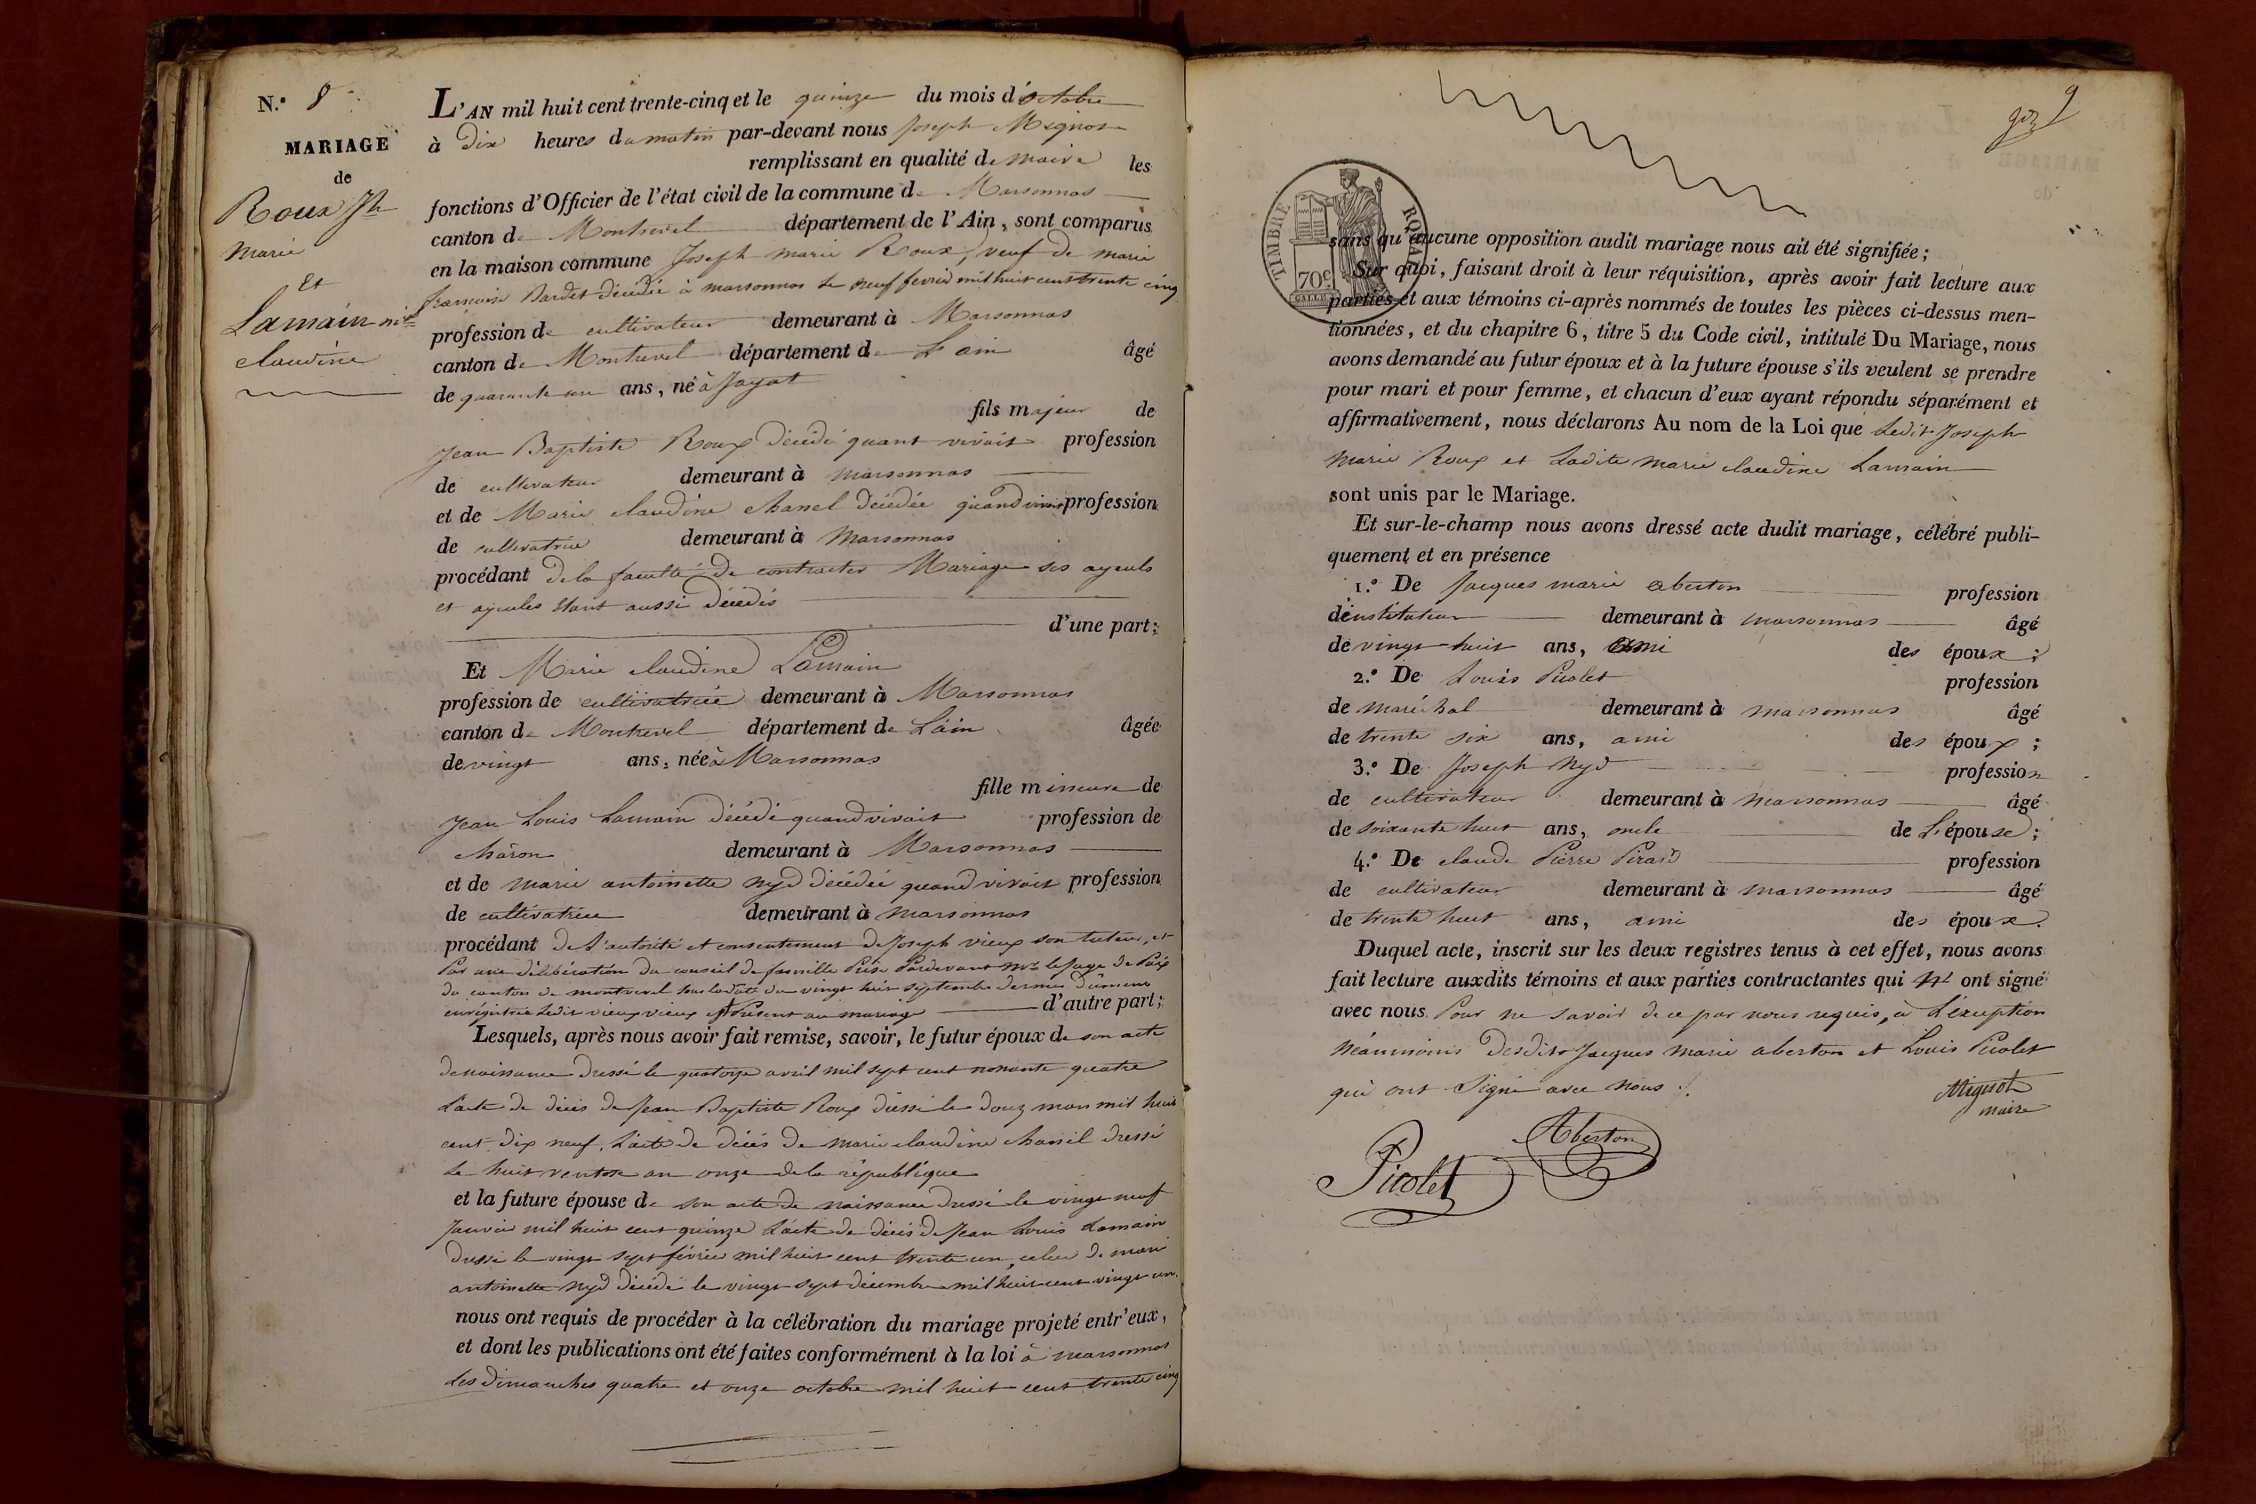 N.° 8
MARIAGE
de
Roux Jh
Marie
Et
Lamain mie
claudine
L'AN mil huit cent trente-cinq et le quinze du mois d'octobre
à Dix heures du matin par-devant nous Joseph Mignot
remplissant en qualité de maire les
fonctions d'Officier de l'état civil de la commune de Marsonnas
canton de Montrevel département de l'Ain, sont comparus
en la maison commune Joseph marie Roux, veuf de marie
francoise Bardet décédée à marsonnas le neuf fevrier mil huit cent trente cinq
profession de cultivateur demeurant à Marsonnas
canton de Montrevel département de L'ain âgé
de quarante un ans, né à Jayat
fils majeur de
Jean Baptiste Roux décédé quant vivait profession
de cultivateur demeurant à marsonnas
et de Marie claudine chanel décédée quand vivait profession
de cultivatrice demeurant à Marsonnas
procédant de la faculté de contracter Mariage ses ayeuls
et ayeules étant aussi décédés
d'une part;
Et Marie claudine Lamain
profession de cultivatrice demeurant à Marsonnas
canton de Montrevel département de L'ain âgée
de vingt ans, née à Marsonnas
fille mineure de
Jean Louis Lamain décédé quand vivait profession de
charon demeurant à Marsonnas
et de marie antoinette nyd décédée quand vivait profession
de cultivatrice demeurant à marsonnas
procédant de L'autorité et consentement de Joseph vieux son tuteur, et
Par une délibération du conseil de famille Prise Pardevant mr le Juge de Paix
du canton de montrevel sous la date du vingt huit septembre dernier dument
enrégistrée Ledit vieux Présent au mariage d'autre part;
Lesquels, après nous avoir fait remise, savoir, le futur époux de son acte
de naissance dressé le quatorze avril mil sept cent nonante quatre
L'acte de décès de Jean Baptiste Roux dressé le douz mars mil huit
cent dix neuf, L'acte de décès de marie claudine chanel dressé
Le huit ventose an onze de la république
et la future épouse de son acte de naissance dressé le vingt neuf
Janvier mil huit cent quinze L'acte de décès de Jean Louis Lamain
dressé le vingt sept février mil huit cent trente un, celui de marie
antoinette nyd décédé le vingt sept décembre mil huit cent vingt un.
nous ont requis de procéder à la célébration du mariage projeté entr'eux,
et dont les publications ont été faites conformément à la loi à marsonnas
Les dimanches quatre et onze octobre mil huit cent trente cinq
9
TIMBRE ROYAL
70c
sans qu'aucune opposition audit mariage nous ait été signifiée;
Sur quoi, faisant droit à leur réquisition, après avoir fait lecture aux
parties et aux témoins ci-après nommés de toutes les pièces ci-dessus men-
tionnées, et du chapitre 6, titre 5 du Code civil, intitulé Du Mariage, nous
avons demandé au futur époux et à la future épouse s'ils veulent se prendre
pour mari et pour femme, et chacun d'eux ayant répondu séparément et
affirmativement, nous déclarons Au nom de la Loi que Ledit Joseph
Marie Roux et Ladite marie claudine Lamain
sont unis par le Mariage.
Et sur-le-champ nous avons dressé acte dudit mariage, célébré publi-
quement et en présence
1.° De Jacques marie aberton profession
d'instituteur demeurant à marsonnas âgé
de vingt huit ans, ami des époux;
2.° De Louis Picolet profession
de maréchal demeurant à marsonnas âgé
de trente six ans, ami des époux;
3.° De Joseph Nyd profession
de cultivateur demeurant à marsonnas âgé
de soixante huit ans, oncle de L'épouse;
4.° De claude Pierre Pirard profession
de cultivateur demeurant à marsonnas âgé
de trente huit ans, ami des époux.
Duquel acte, inscrit sur les deux registres tenus à cet effet, nous avons
fait lecture auxdits témoins et aux parties contractantes qui n'ont signé
avec nous Pour ne savoir de ce par nous requis, à L'exception
Néanmoins desdits Jacques marie aberton et Louis Picolet
qui ont Signé avec nous.
Mignot
maire
Aberton
Picolet